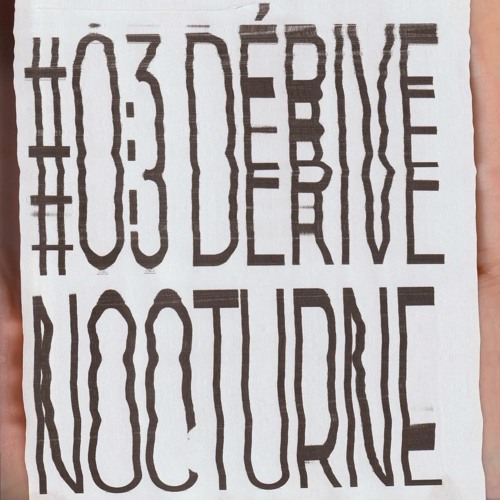 #03 DÉRIVE
NOCTURNE